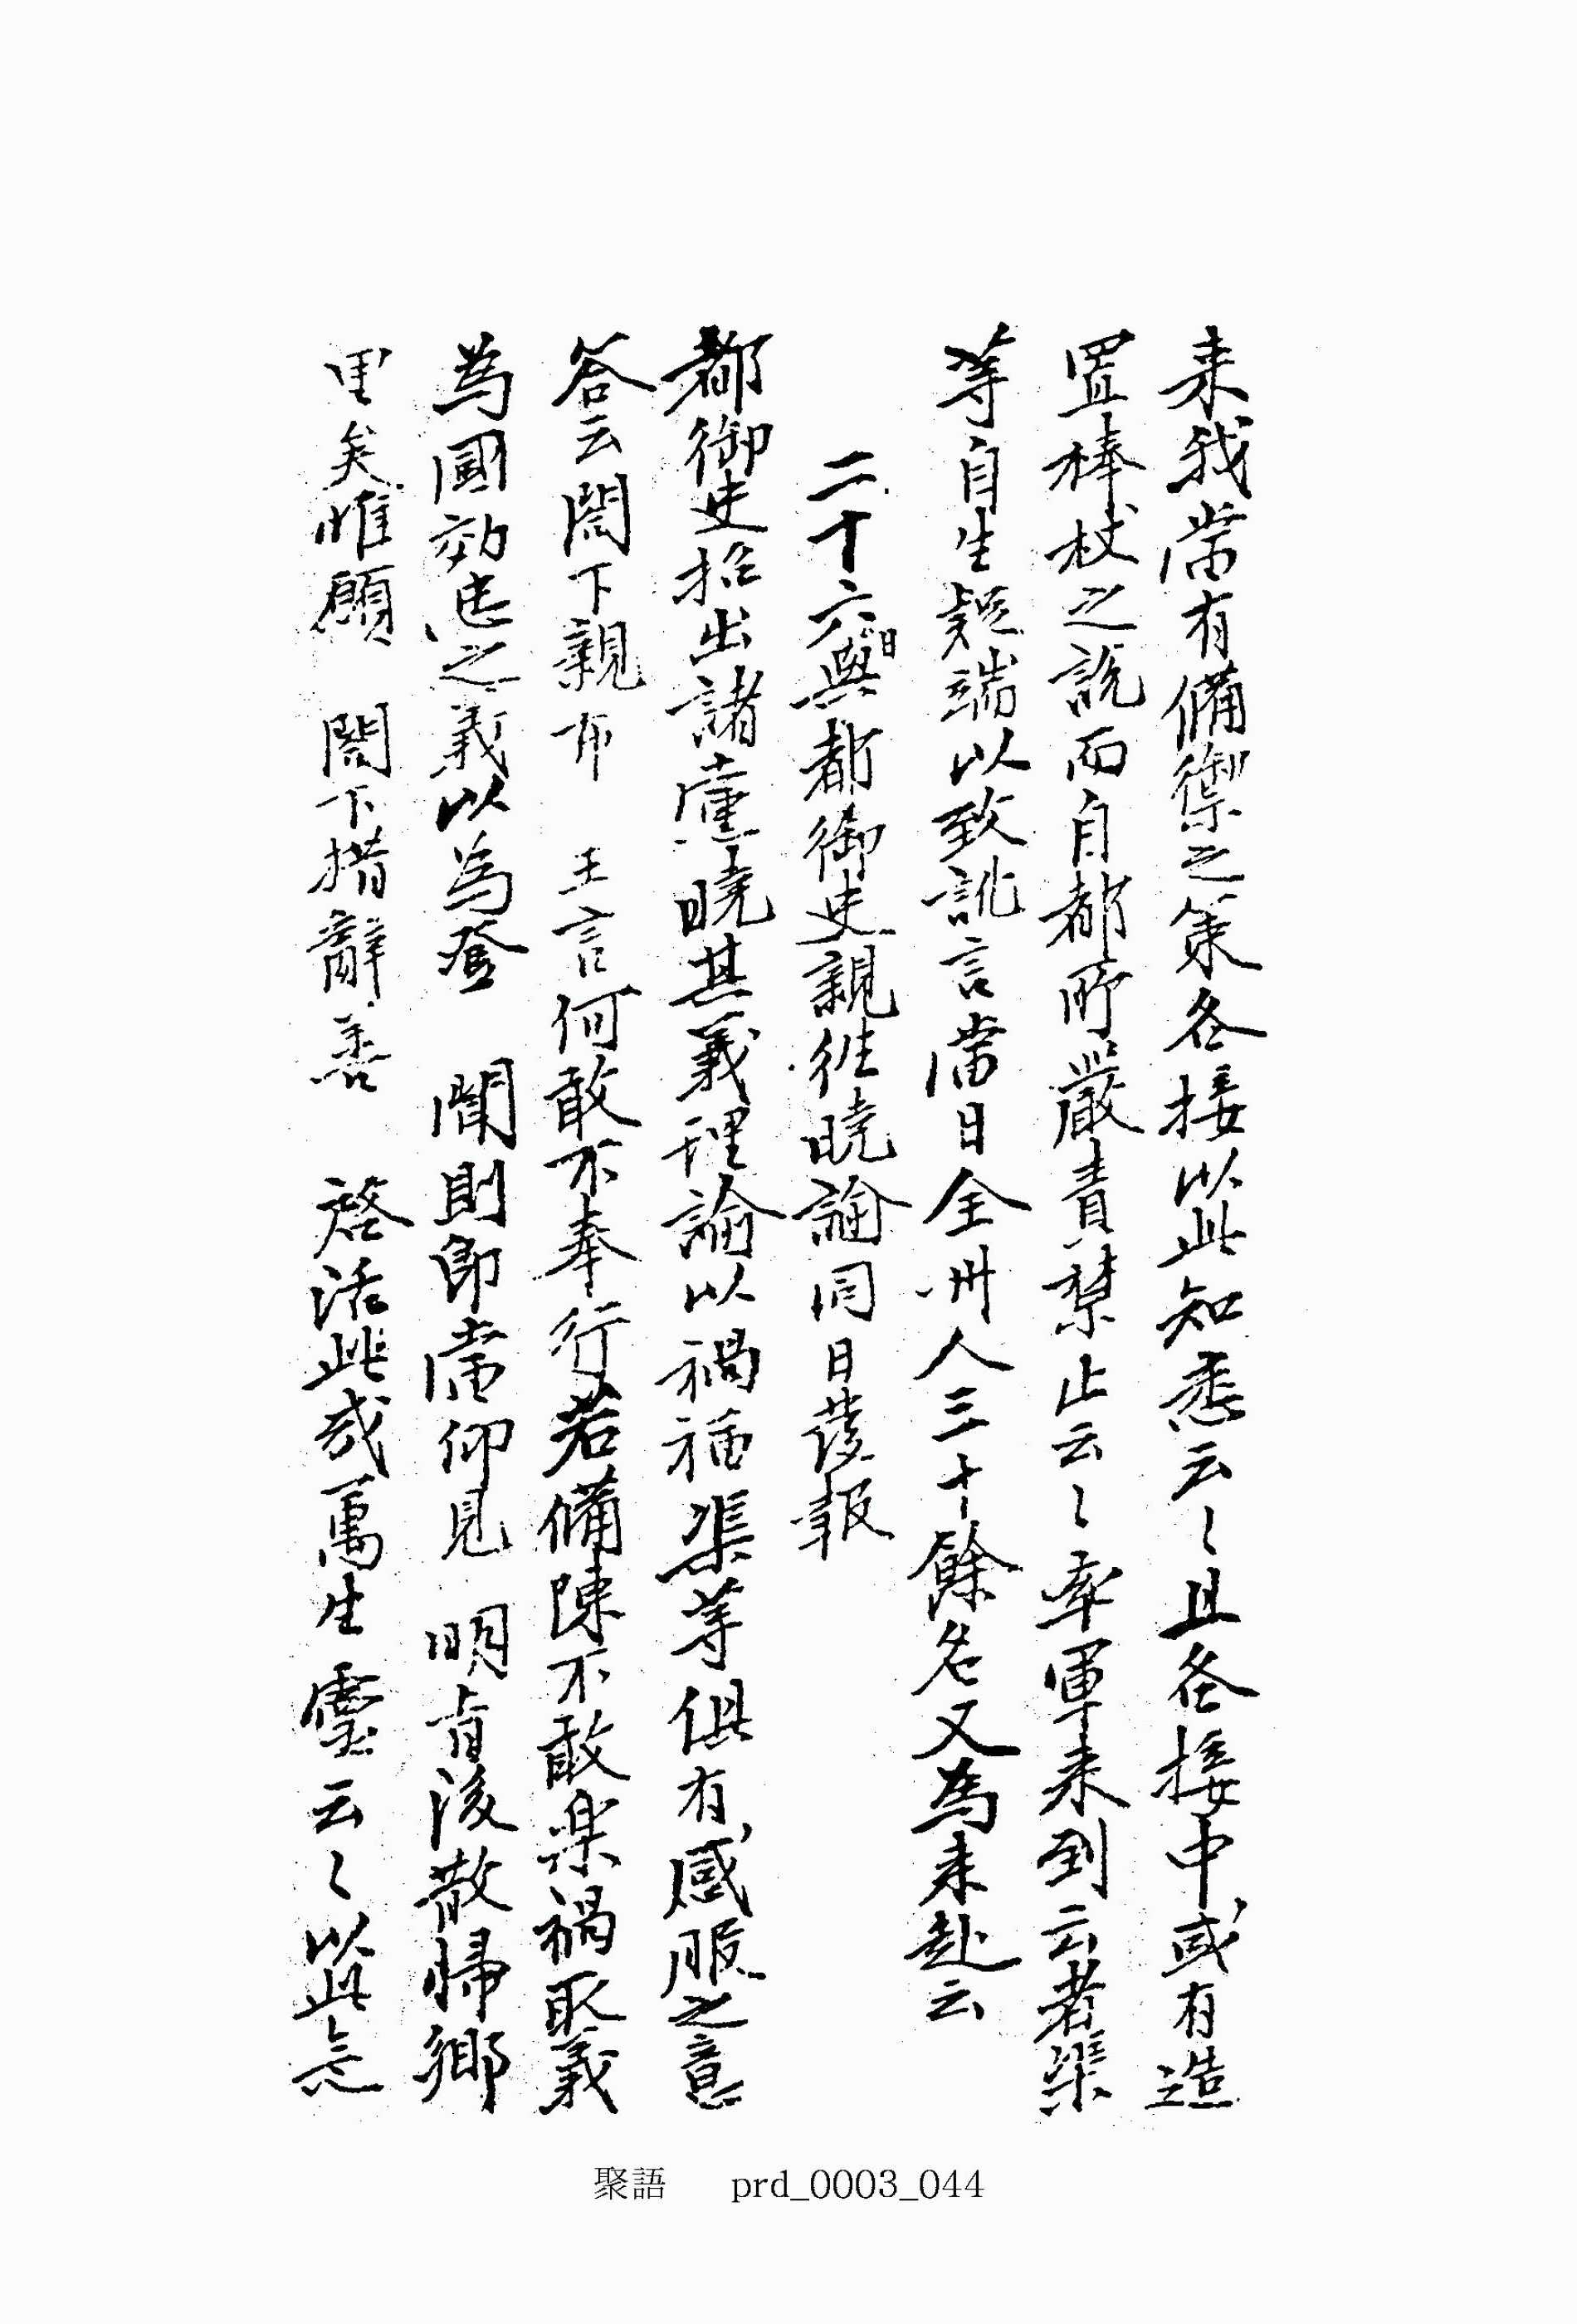 来我當有備禦之策各接以此知悉云〻且各接中或有造
置棒杖之說而自都所嚴責禁止云〻率軍来到云者渠
等自生疑端以致訛言當日全州人三十餘名又為来赴云
二十六日與都御史親往曉諭同日發報
都御史招出諸黨曉其義理諭以禍福渠等俱有感服之意
答云閤下親布 王言何敢不奉行若備陳不敢樂禍取義
為國効忠之義以為登 聞則即當仰見 明旨後散歸鄉
里矣惟願 閤下措辭善 啓活此或萬生靈云〻以此為
聚語 prd_0003_044